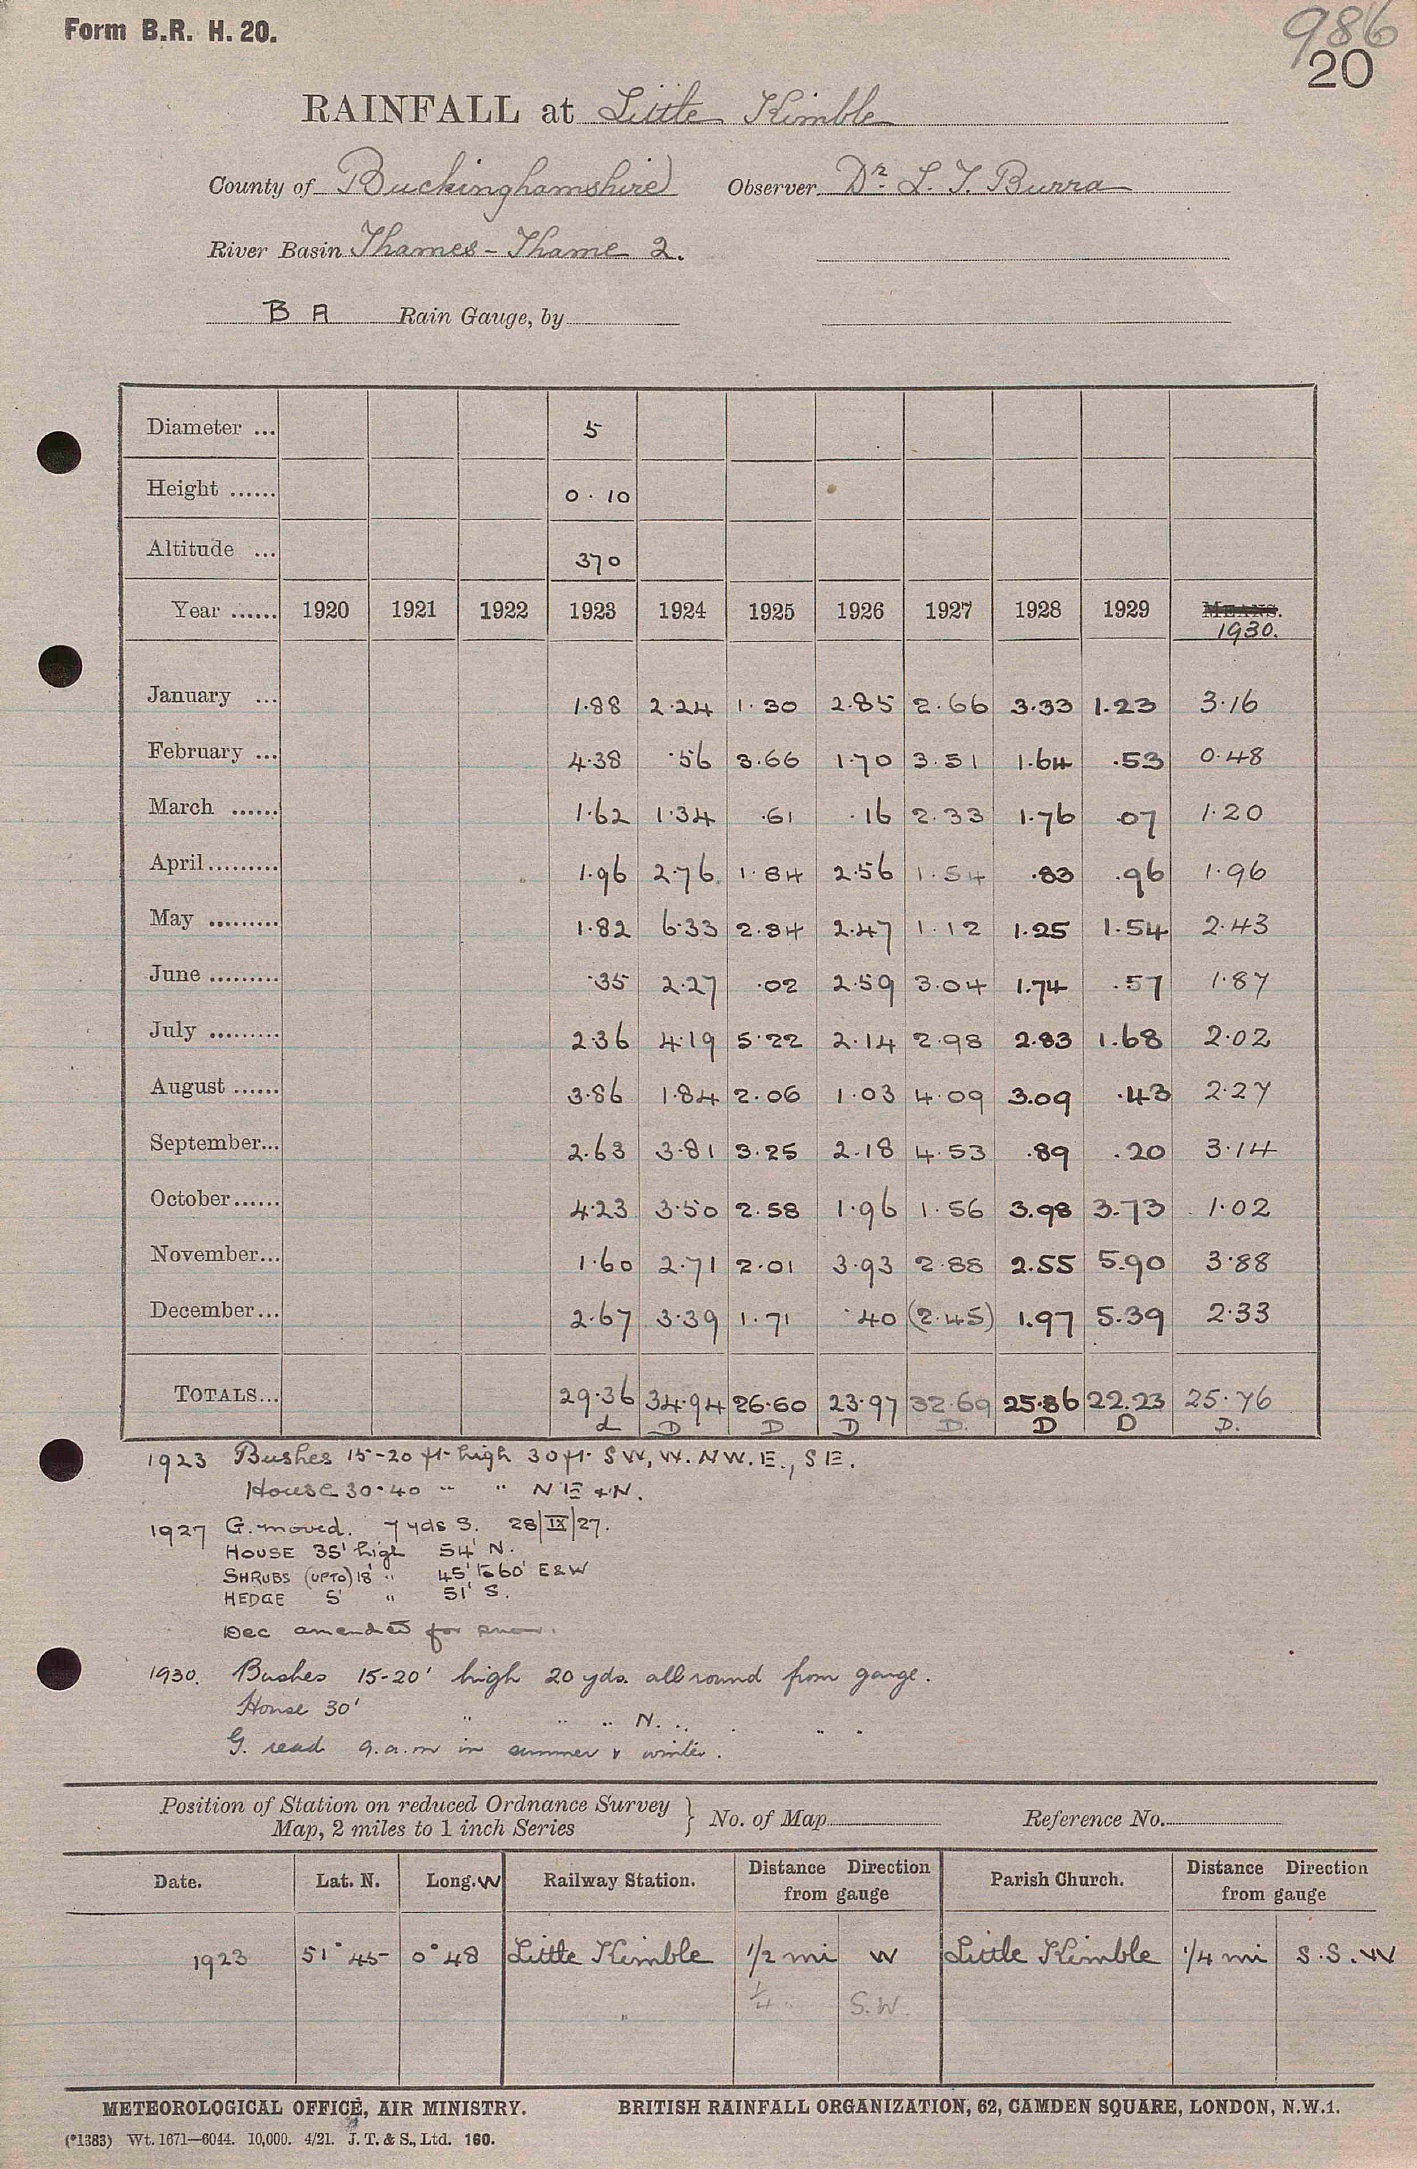 Form B.R. H. 20.
986
20
RAINFALL at Little Kimble
County of Buckinghamshire Observer Dr. L. T. Burra
River Basin Thames - Thame 2.
B A Rain Gauge, by
Diameter ... 5
Height ...... 0.10
Altitude ... 370
Year ...... 1920 1921 1922 1923 1924 1925 1926 1927 1928 1929 MEANS.
1930.
January ... 1.88 2.24 1.30 2.85 2.66 3.33 1.23 3.16
February ... 4.38 .56 3.66 1.70 3.51 1.64 .53 0.48
March ...... 1.62 1.34 .61 .16 2.33 1.76 .07 1.20
April ......... 1.96 2.76 1.84 2.56 1.54 .83 .96 1.96
May ......... 1.82 6.33 2.34 2.47 1.12 1.25 1.54 2.43
June ......... .35 2.27 .02 2.59 3.04 1.74 .57 1.87
July ......... 2.36 4.19 5.22 2.14 2.98 2.83 1.68 2.02
August ...... 3.86 1.84 2.06 1.03 4.09 3.09 .43 2.27
September... 2.63 3.81 3.25 2.18 4.53 .89 .20 3.14
October ...... 4.23 3.50 2.58 1.96 1.56 3.98 3.73 1.02
November... 1.60 2.71 2.01 3.93 2.88 2.55 5.90 3.88
December... 2.67 3.39 1.71 .40 (2.45) 1.97 5.39 2.33
TOTALS... 29.36 34.94 26.60 23.97 32.69 25.86 22.23 25.76
d D D D D. D D D.
1923 Bushes 15-20 ft. high 30 ft. SW, W. NW. E., SE.
House 30-40 " " NE + N.
1927 G. moved. 7 yds S. 28/IX/27.
HOUSE 35' high 54' N.
SHRUBS (UP TO) 18' " 45' to 60' E & W
HEDGE 5' " 51' S.
Dec amended for snow.
1930. Bushes 15-20' high 20 yds. all round from gauge.
House 30' " " " N. " " "
G. read 9.a.m in summer & winter.
Position of Station on reduced Ordnance Survey
Map, 2 miles to 1 inch Series } No. of Map Reference No.
Date. Lat. N. Long. W Railway Station. Distance Direction from gauge Parish Church. Distance Direction from gauge
1923 51° 45 0° 48 Little Kimble 1/2 mi W Little Kimble 1/4 mi S.S.W
" 1/4 " S.W.
METEOROLOGICAL OFFICE, AIR MINISTRY. BRITISH RAINFALL ORGANIZATION, 62, CAMDEN SQUARE, LONDON, N.W.1.
(*1383) Wt. 1671—6044. 10,000. 4/21. J. T. & S., Ltd. 160.